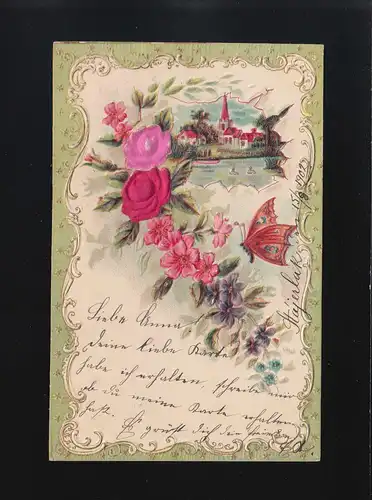 Liebe Anna
Deine liebe Karte
habe ich erhalten, schreibe mir
ob du meine Karte erhalten
hast. Es grüst dich dein
15/9 1902